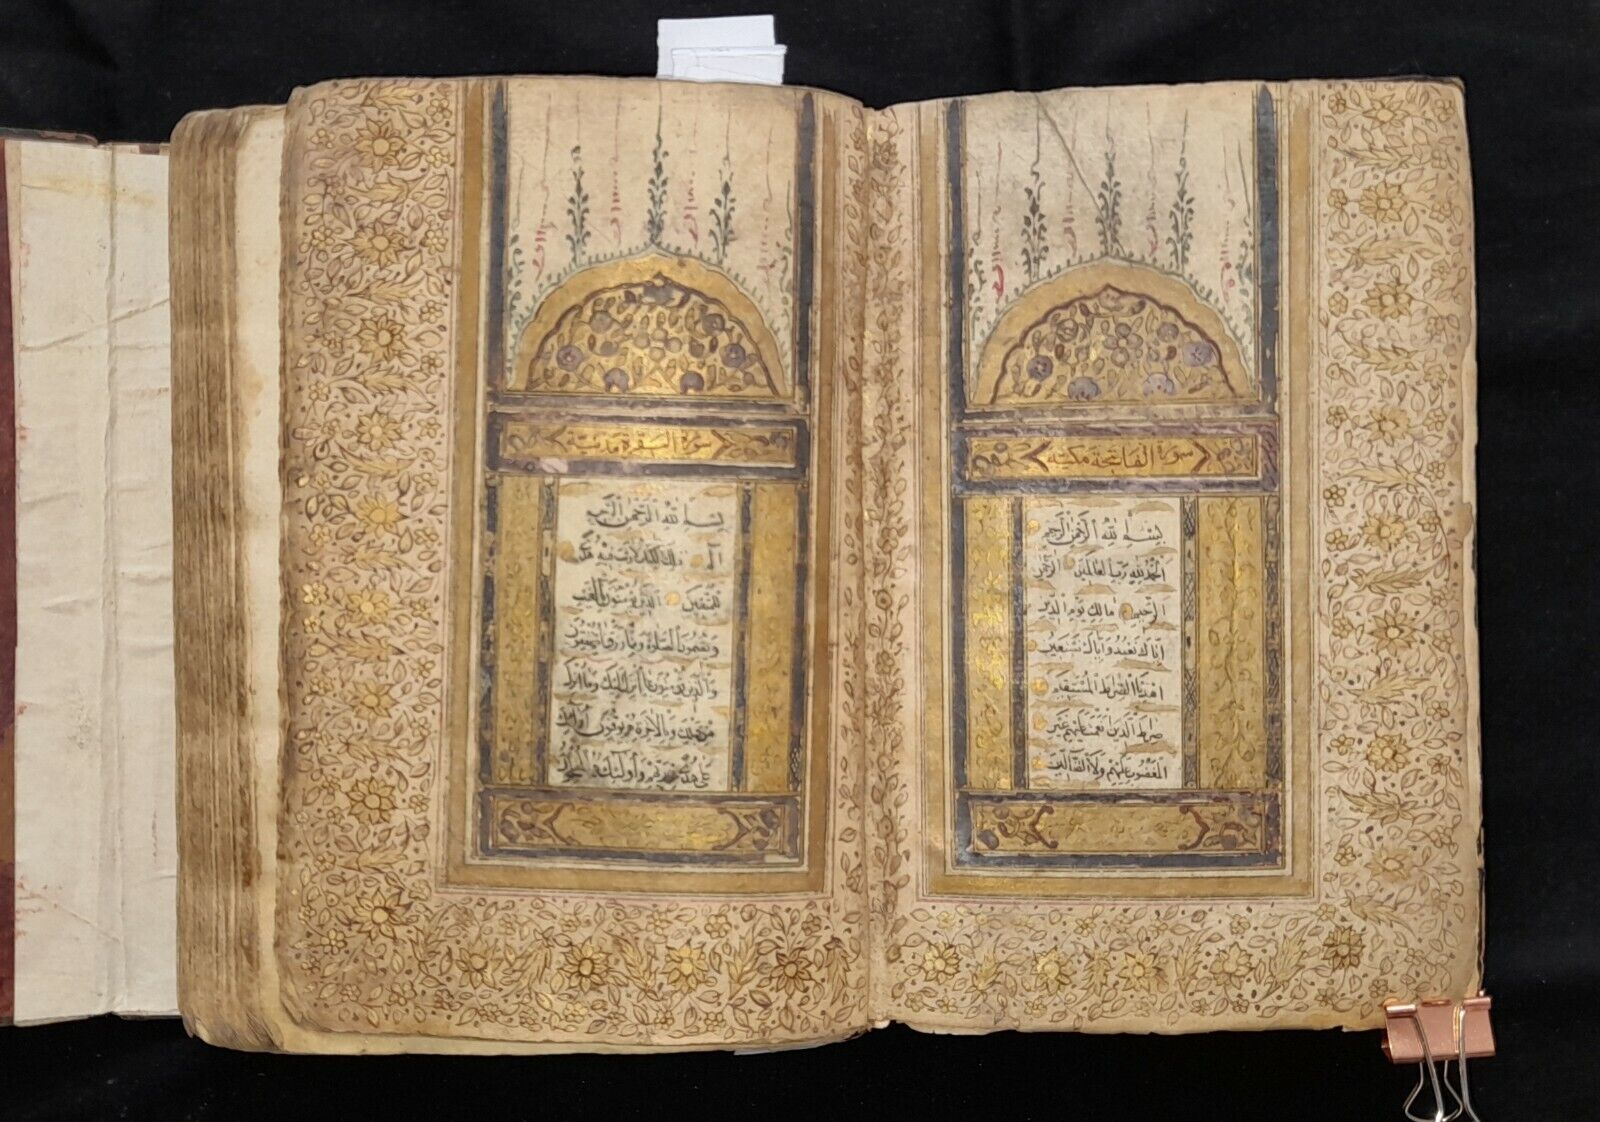 سورة الفاتحة مكية
بسم الله الرحمن الرحيم
الحمد لله رب العالمين الرحمن
الرحيم مالك يوم الدين
اياك نعبد واياك نستعين
اهدنا الصراط المستقيم
صراط الذين انعمت عليهم غير
المغضوب عليهم ولا الضالين
سورة البقرة مدنية
بسم الله الرحمن الرحيم
الم ذلك الكتاب لا ريب فيه هدى
للمتقين الذين يؤمنون بالغيب
ويقيمون الصلوة ومما رزقناهم ينفقون
والذين يؤمنون بما انزل اليك وما انزل
من قبلك وبالاخرة هم يوقنون اولئك
على هدى من ربهم واولئك هم المفلحون